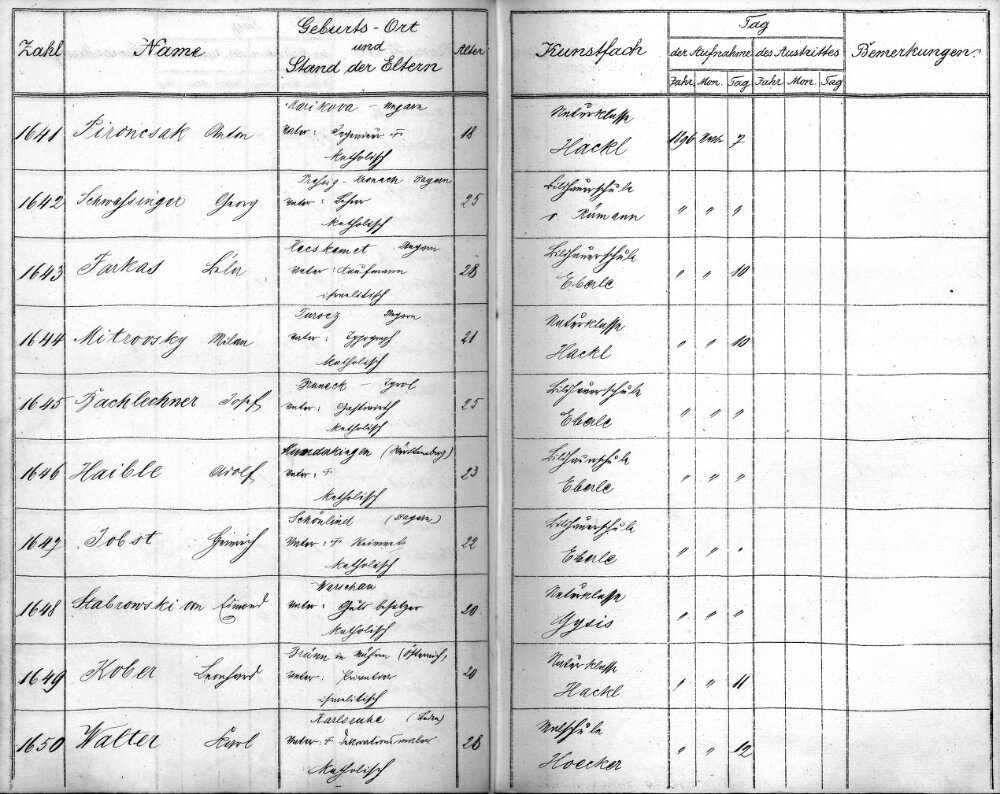 Zahl Name Geburts-Ort und Stand der Eltern Alter Kunstfach Tag der Aufnahme des Austrittes Bemerkungen.
Jahr Mon. Tag Jahr Mon. Tag
Marikova – Ungarn
1641 Pironcsak Anton Vater: Ingenieur † 18 Naturklasse
Katholisch Hackl 1896 7
Kronach Bayern
1642 Schwassinger Georg Vater: Lehrer 25 Bildhauerschule
Katholisch v. Rümann " " "
Kecskemet Ungarn
1643 Farkas Béla Vater: Kaufmann 28 Bildhauerschule
israelitisch Eberle " " 10
Turocz Ungarn
1644 Mitrovsky Milan Vater: Typograph 21 Naturklasse
Katholisch Hackl " " 10
Bruneck – Tyrol
1645 Bachlechner Josef Vater: Gastwirth 25 Bildhauerschule
Katholisch Eberle " " "
(Württemberg)
1646 Haible Adolf Vater: † 23 Bildhauerschule
Katholisch Eberle " " "
Schönlind (Bayern)
1647 Jobst Heinrich Vater: † 22 Bildhauerschule
Katholisch Eberle " " "
Warschau
1648 Stabrowski von Vater: Gutsbesitzer 20 Naturklasse
Katholisch Gysis " " "
Brünn in Mähren (Österreich,
1649 Kober Leonhard Vater: Privatier 20 Naturklasse
israelitisch Hackl " " 11
Karlsruhe (Baden)
1650 Walter Karl Vater † Dekorationsmaler 28 Malschule
Katholisch Hoecker " " 12